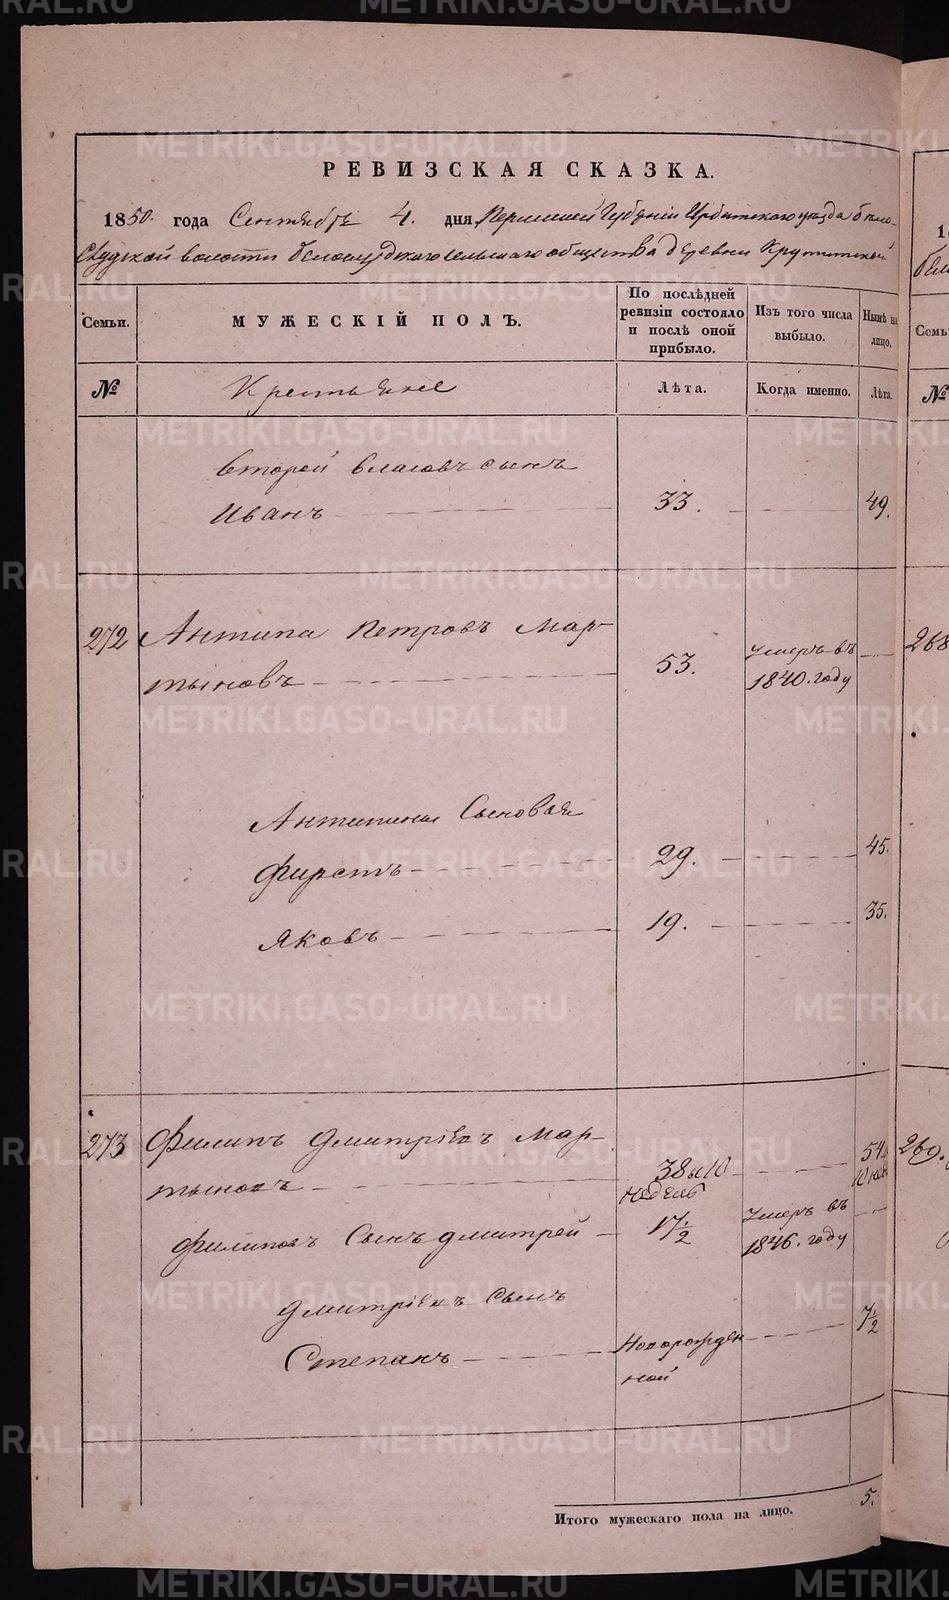 РЕВИЗСКАЯ СКАЗКА.
1850. года Сентября 4. дня Пермской Губерніи Ирбитскаго уезда бело-
Слудской волости белослудскаго сельскаго общества деревни Крутитской
Семьи.
МУЖЕСКІЙ ПОЛЪ.
По послѣдней
ревизіи состояло
и послѣ оной
прибыло.
Изъ того числа
выбыло.
Нынѣ на
лицо.
№
Крестьяне
Лѣта.
Когда именно.
Лѣта.
второй власовъ сынъ
Иванъ 33. 49.
272 Антипа Петровъ Мар-
тыновъ 53. Умеръ въ
1840. году
Антипины Сыновья
Фирстъ 29. 45.
Яковъ 19. 35.
273 Филипъ Дмитріевъ Мар-
тыновъ 38 и 10
недель
Филиповъ Сынъ Дмитрей 17½ Умеръ въ
1846. году
Дмитріевъ Сынъ
Степанъ Новорожден
ной 7½
Итого мужескаго пола на лицо. 5.
268
269.
№
METRIKI.GASO-URAL.RU